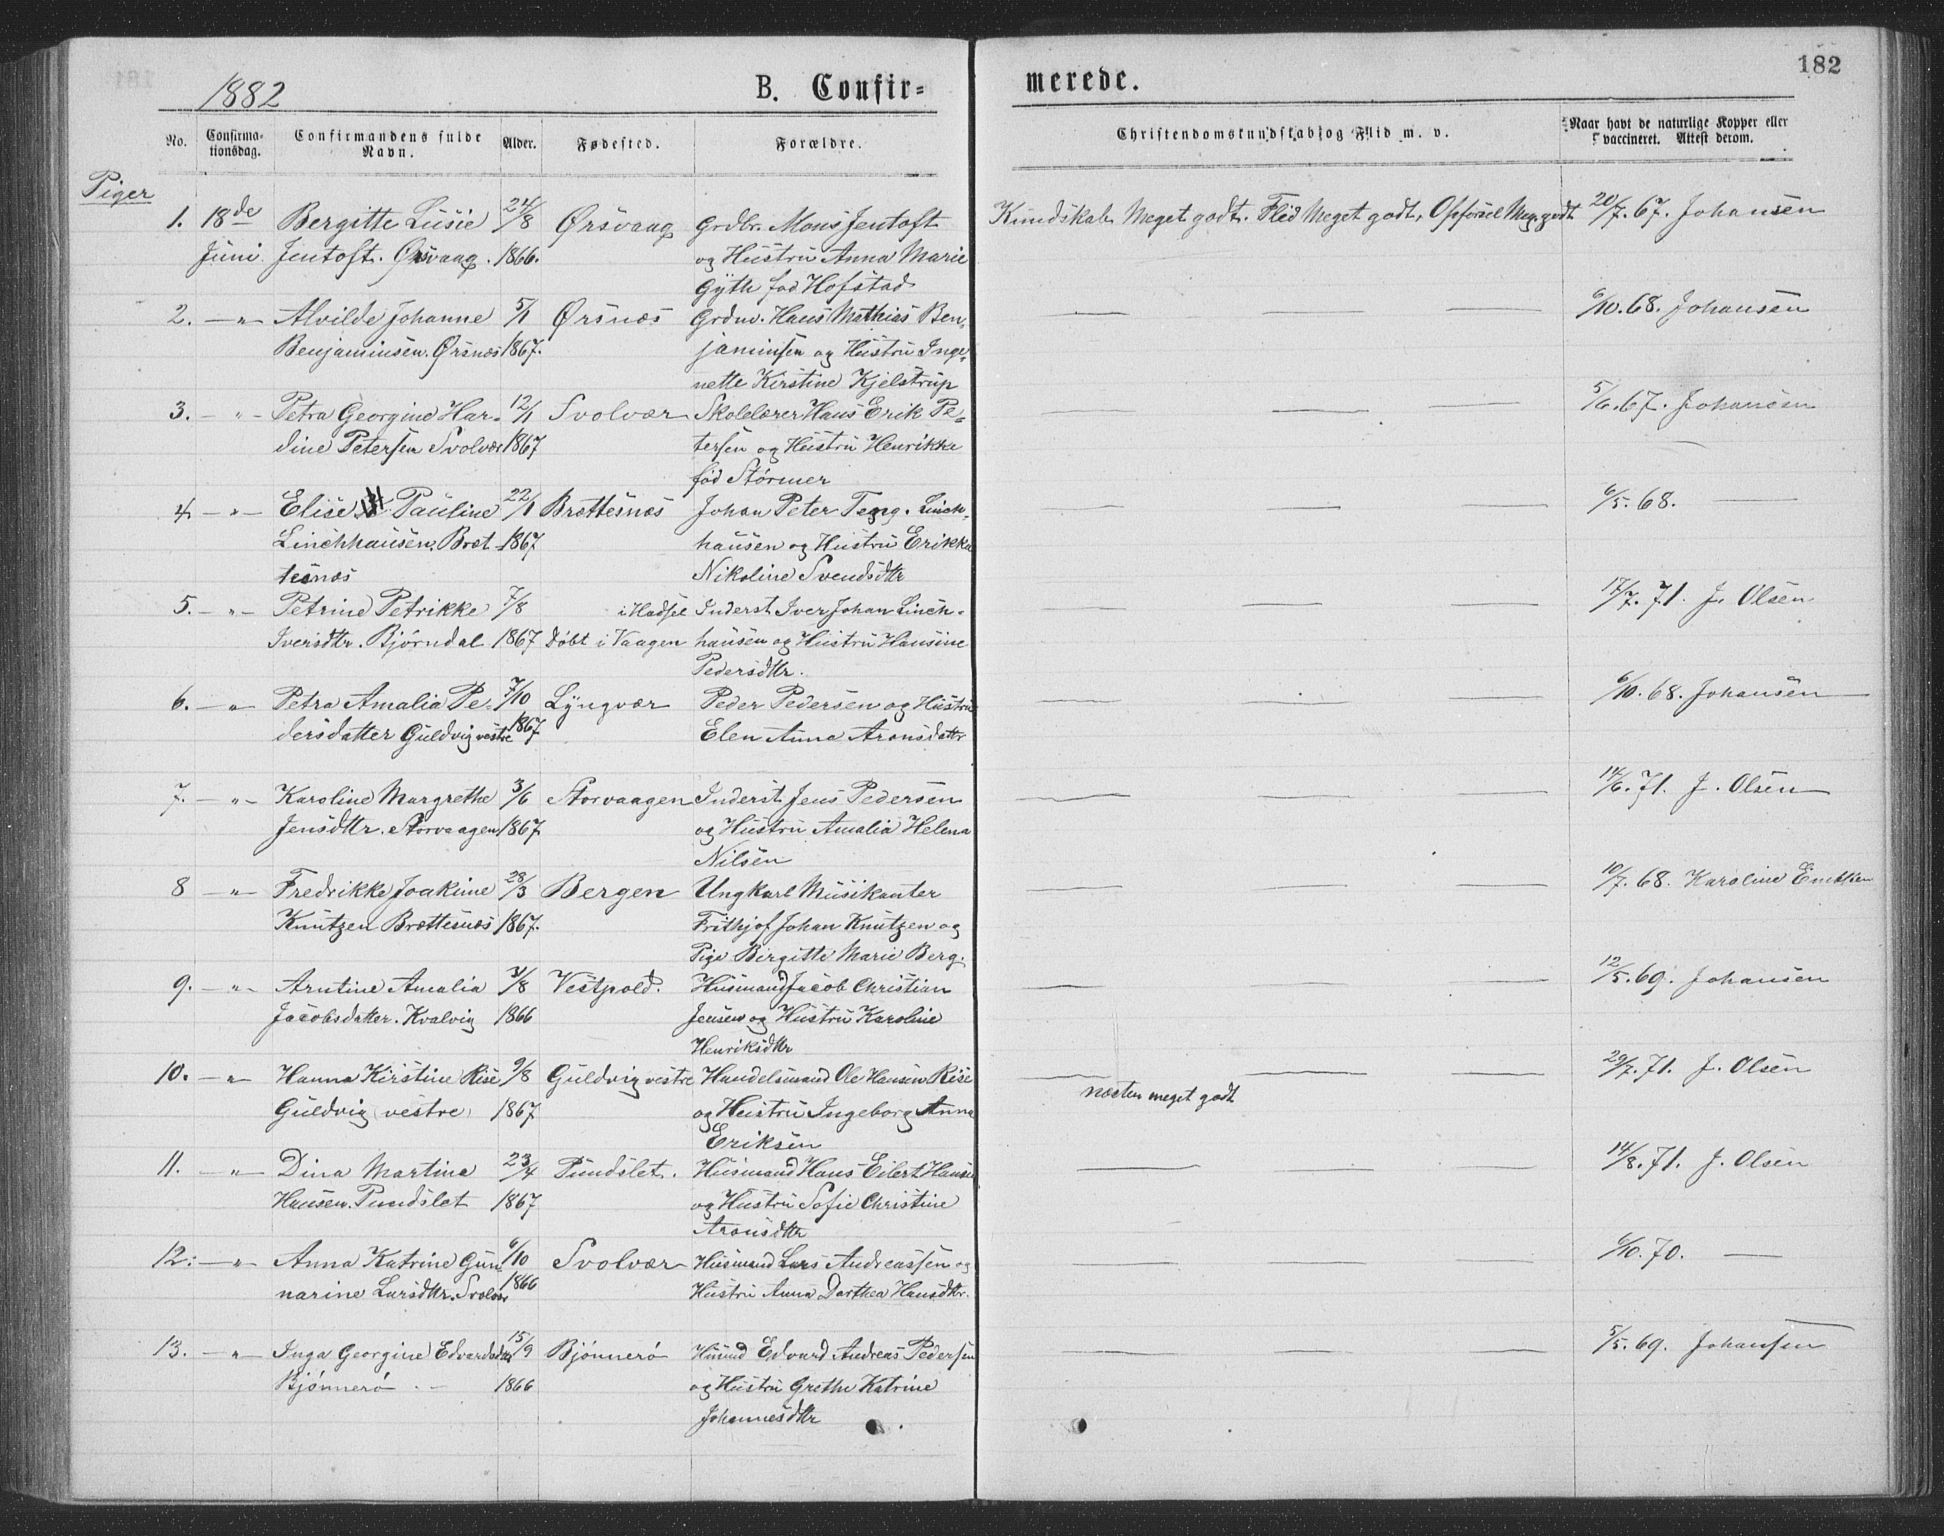 182
1882 B. Confir= merede.
No. Confirma-tionsdag. Confirmandens fulde Navn. Alder. Fødested. Forældre. Christendomskundskab og Flid m. v. Naar havt de naturlige Kopper eller vaccineret. Attest derom.
Piger
1. 18de Bergitte Lusie 24/8 Ørsvaag Grdbr. Mons Jentoft Kundskab Meget godt. Flid Meget godt, Opførsel Meg. godt 20/7. 67. Johansen
Juni Jentoft. Ørsvaag. 1866. og Hustru Anna Marie
Gyth fød Hofstad
2. — " — Alvilde Johanne 5/1 Ørsnæs Grdm. Hans Mathias Ben- — — — 6/10. 68. Johansen
Benjaminsen. Ørsnæs 1867. jaminsen og Hustru Inge-
nette Kirstine Kjelstrup
3. — " — Petra Georgine Har- 12/1 Svolvær Skolelærer Hans Erik Pe- — — — 5/6. 67. Johansen
dine Petersen Svolvær 1867 tersen og Hustru Henrikke
fød Störmer
4 — " — Elise Pauline 22/1 Brettesnæs Johan Peter Teng. Linch- — — — 6/5. 68. —
Linchhausen. Bret- 1867 hausen og Hustru Erikka
tesnæs Nikoline Svendsdtr
5. — " — Petrine Petrikke 7/8 i Hadsel Inderst Iver Johan Linch- — — — 17/7. 71. J. Olsen
Iversdtr. Bjørndal 1867 Døbt i Vaagen hausen og Hustru Hansine
Pedersdtr.
6. — " — Petra Amalia Pe- 7/10 Lyngvær Peder Pedersen og Hustru — — — 6/10. 68. Johansen
dersdatter Guldvig vestre 1867 Elen Anna Aronsdattr
7. — " — Karoline Margrethe 3/6 Storvaagen Inderst Jens Pedersen — — — 14/6. 71. J. Olsen
Jensdtr. Storvaagen 1867 og Hustru Amalia Helena
Nilsen
8 — " — Fredrikke Joakime 28/3 Bergen Ungkarl Musikanter — — — 10/7. 68. Karoline
Knutzen Brettesnæs 1867. Frithjof Johan Knutzen og
Pige Birgitte Marie Berg.
9. — " — Arntine Amalia 31/8 Vestpold. Husmand Jacob Christian — — — 12/5. 69. Johansen
Jacobsdatter. Kvalvig 1866 Jensen og Hustru Karoline
Henriksdtr
10. — " — Hanna Kirstine Rise 9/8 Guldvig vestre Handelsmand Ole Hansen Rise — — — 29/7. 71. J. Olsen
Guldvig vestre 1867 og Hustru Ingeborg Anna næsten meget godt
Eriksen
11. — " — Dina Martina 23/4 Pundslet. Husmand Hans Eilert Hansen — — — 14/8. 71. J. Olsen
Hansen. Pundslet 1867 og Hustru Sofie Christine
Aronsdtr
12: — " — Anna Katrine Gun- 6/10 Svolvær Husmand Lars Andreassen og — — — 6/10. 70. —
narine Larsdtr. Svolvær 1866 Hustru Anna Dorthea Hansdtr.
13. — " — Inga Georgine Edvardsdtr 15/9 Bjønnerø Husmd Edvard Andreas Pedersen — — — 5/5. 69. Johansen
Bjønnerø 1866 og Hustru Grethe Katrine
Johannesdtr